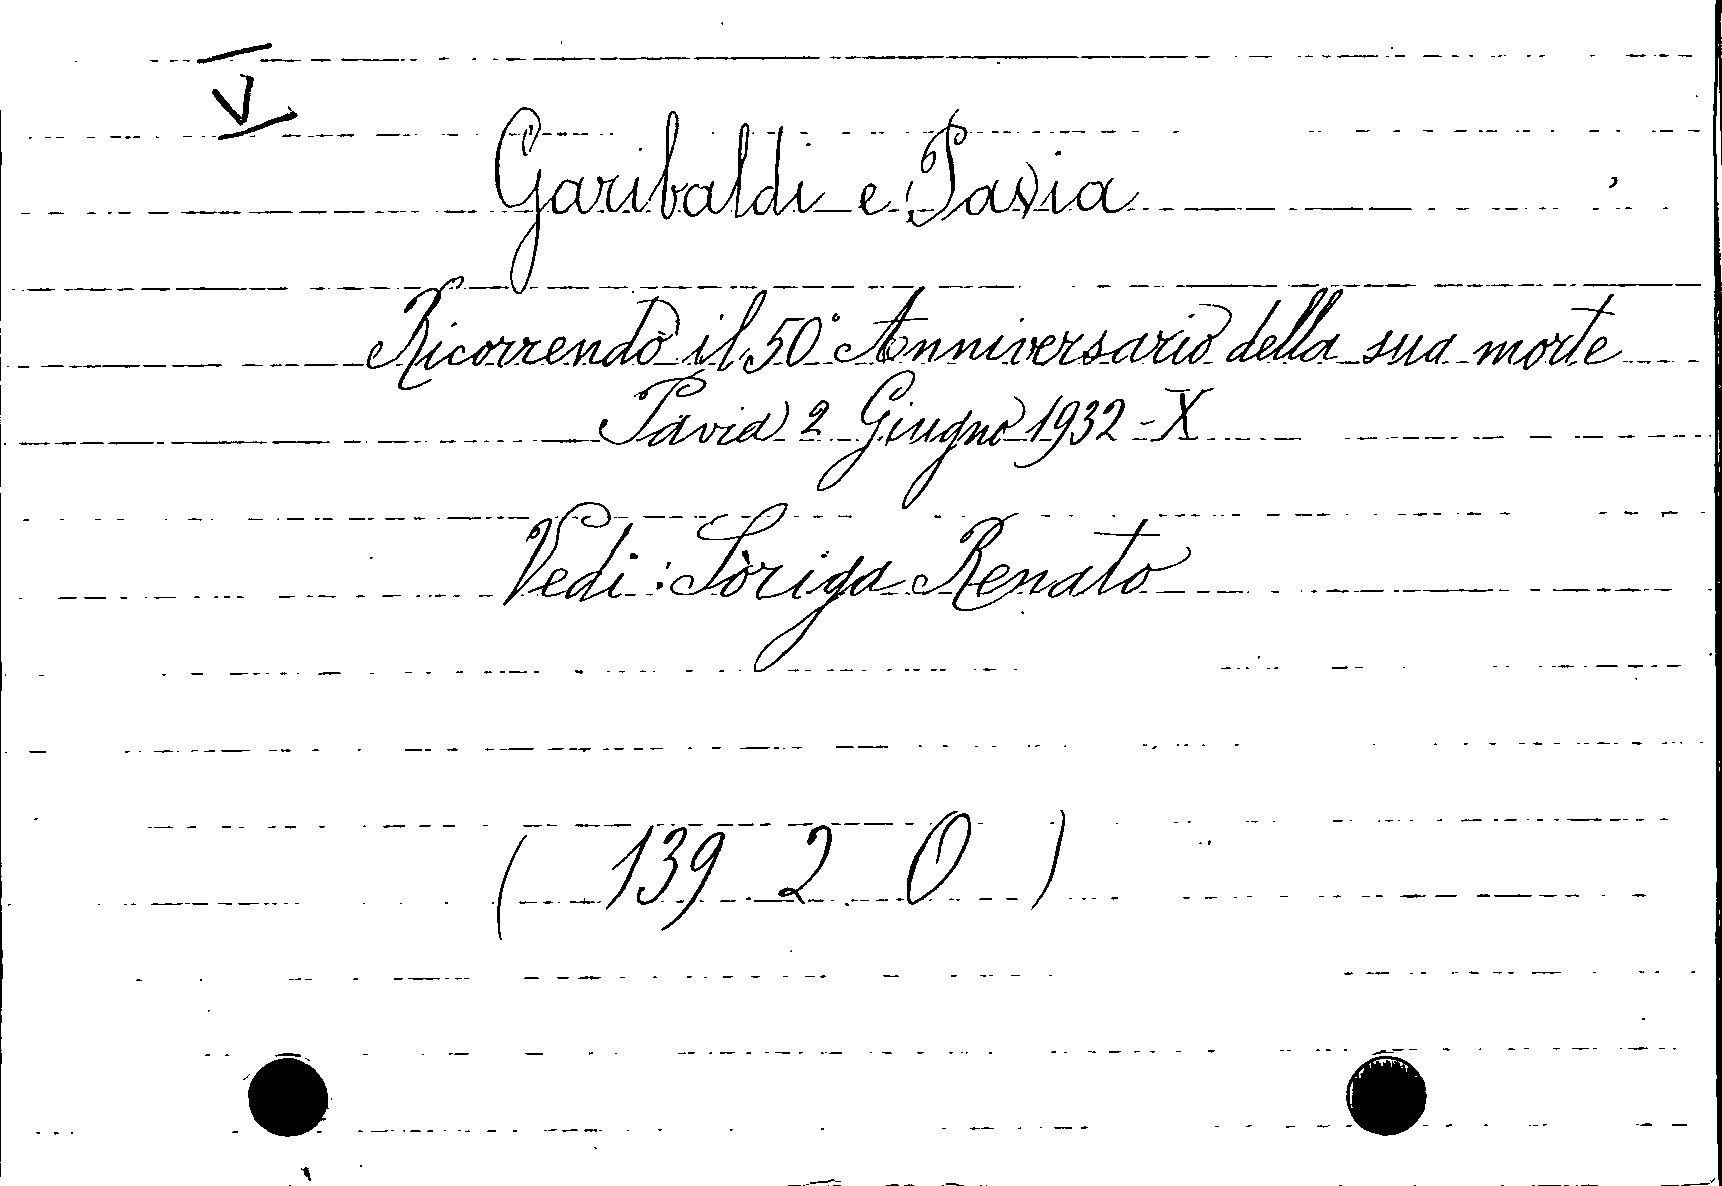 V
Garibaldi e Pavia
Ricorrendo il 50° Anniversario della sua morte
Pavia 2 Giugno 1932 - X
Vedi : Sòriga Renato
( 139 2 O )